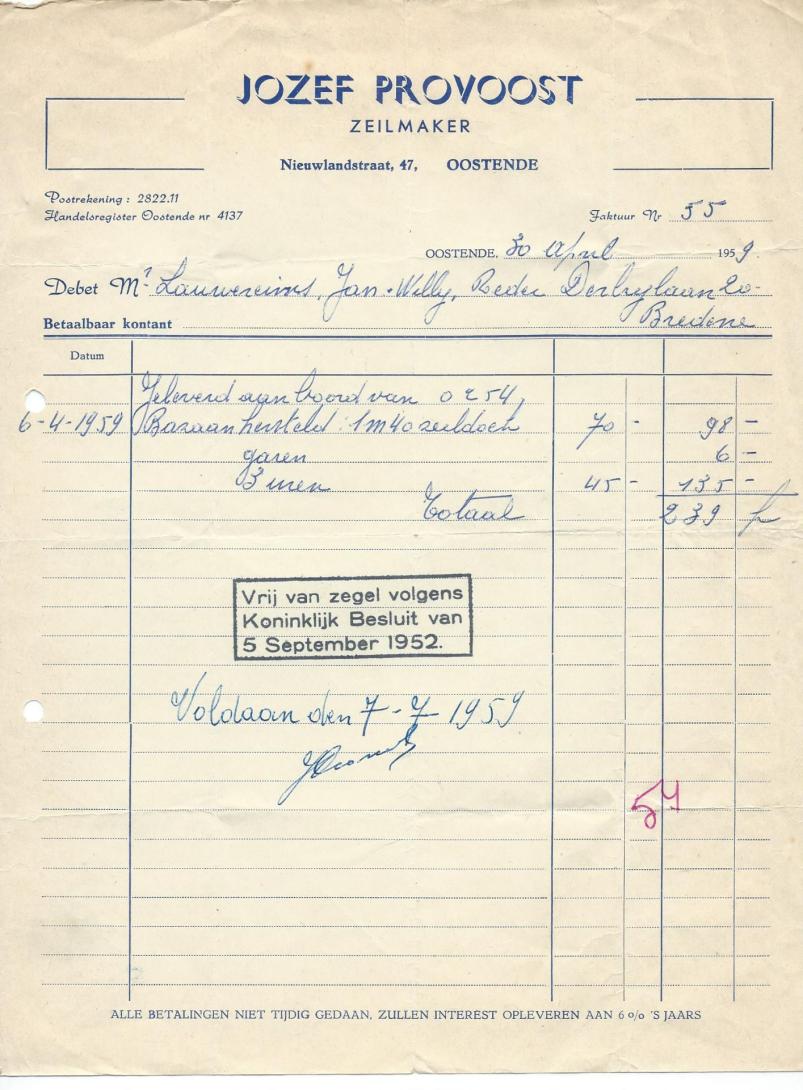 JOZEF PROVOOST
ZEILMAKER
Nieuwlandstraat, 47, OOSTENDE
Postrekening : 2822.11
Handelsregister Oostende nr 4137
Faktuur Nr 55
OOSTENDE, 30 April 1959.
Debet Mr Lauwereins, Jan-Willy, Reder Derbylaan 20-
Bredene
Betaalbaar kontant
Datum
Geleverd aan boord van O 254,
6-4-1959 Bazaan hersteld : 1m40 zeildoek 70 - 98 -
garen 6 -
3 uren 45 - 135 -
Totaal 239 fr
Vrij van zegel volgens
Koninklijk Besluit van
5 September 1952.
Voldaan den 7-7 1959
54
ALLE BETALINGEN NIET TIJDIG GEDAAN, ZULLEN INTEREST OPLEVEREN AAN 6 o/o 'S JAARS